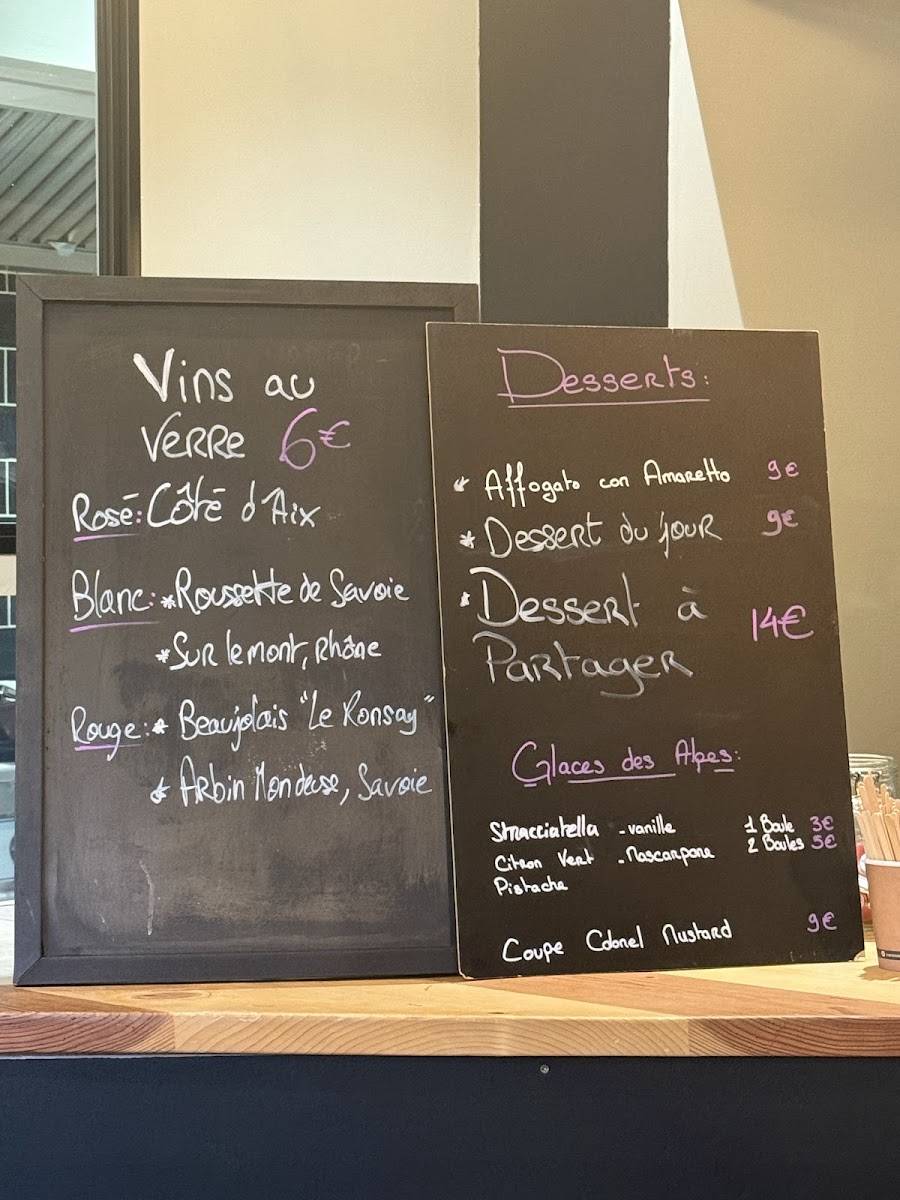 Vins au
Verre 6€
Rosé: Côté d'Aix
Blanc: * Roussette de Savoie
* Sur le mont, Rhône
Rouge: * Beaujolais "Le Ronsay"
* Arbin Mondeuse, Savoie
Desserts:
* Affogato con Amaretto 9€
* Dessert du jour 9€
* Dessert à
Partager 14€
Glaces des Alpes:
Stracciatella - vanille 1 Boule 3€
Citron Vert - Mascarpone 2 Boules 5€
Pistache
Coupe Colonel Mustard 9€